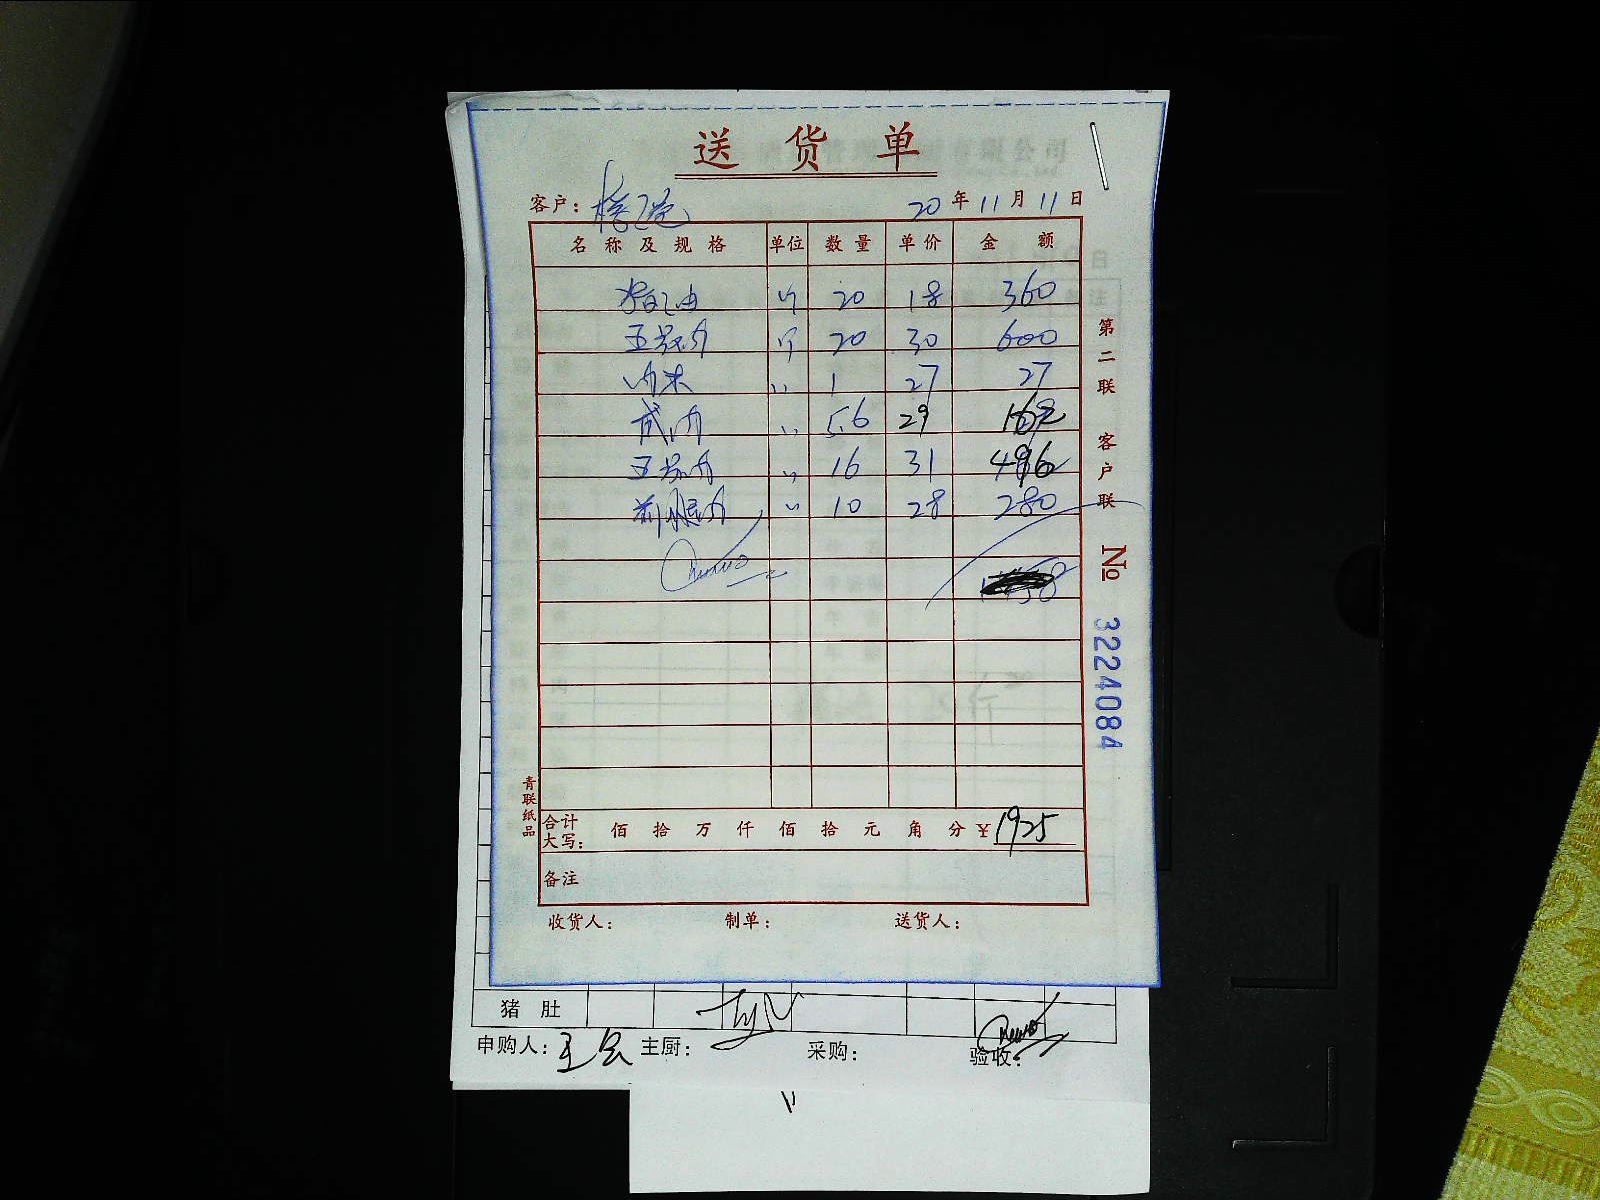 送货单
客户: 20年11月11日
名称及规格 单位 数量 单价 金额
猪油 斤 20 18 360
五花肉 斤 20 30 600
肉末 〃 1 27 27
肉 〃 5.6 29 162
五花肉 〃 16 31 496
前腿肉 〃 10 28 280
合计大写: 佰拾万仟佰拾元角分 ¥1925
备注
收货人: 制单: 送货人:
第二联 客户联
№ 3224084
青联纸品
猪肚
申购人: 主厨: 采购: 验收: